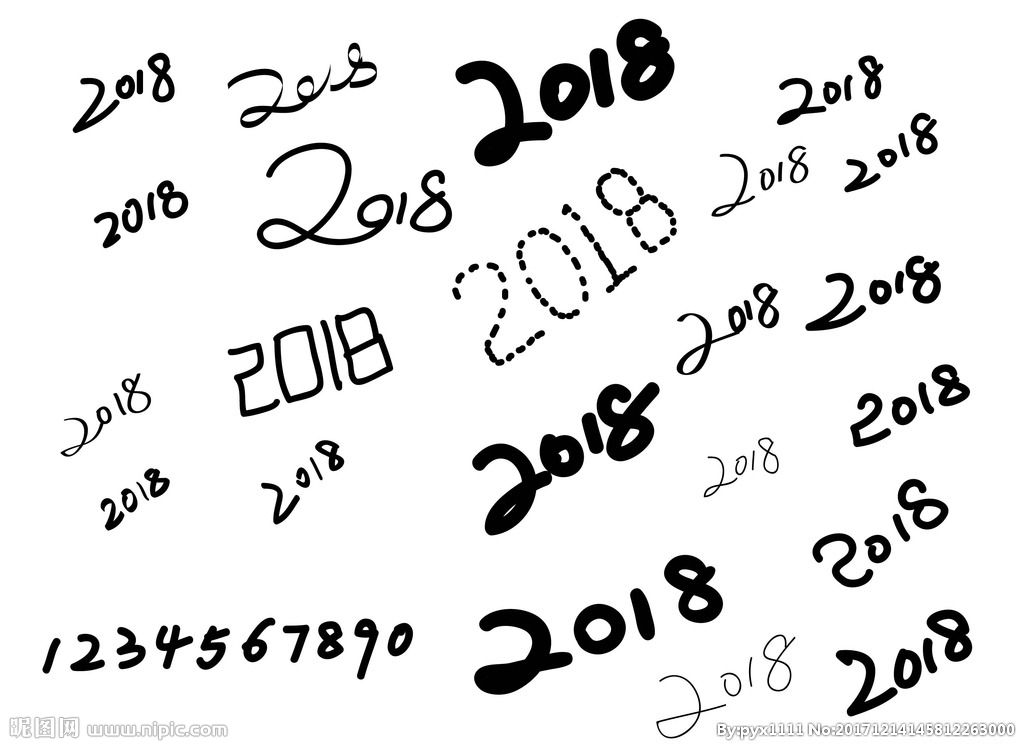 2018
2018
2018
2018
2018
2018
2018
2018
2018
2018
2018
2018
2018
2018
2018
2018
2018
2018
2018
2018
1234567890
2018
2018
昵图网 www.nipic.com
By:pyx1111 No:20171214145812263000